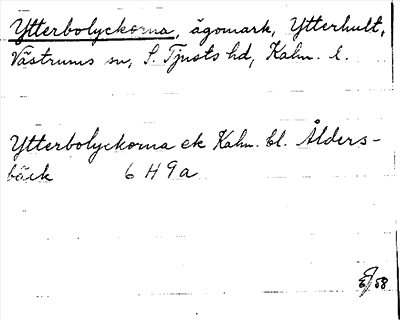 Ytterbolyckorna, ägomark, Ytterhult,
Västrums sn, S. Tjusts hd, Kalm. l.
Ytterbolyckorna ek Kalm. bl. Ålders-
bäck 6 H 9a
58